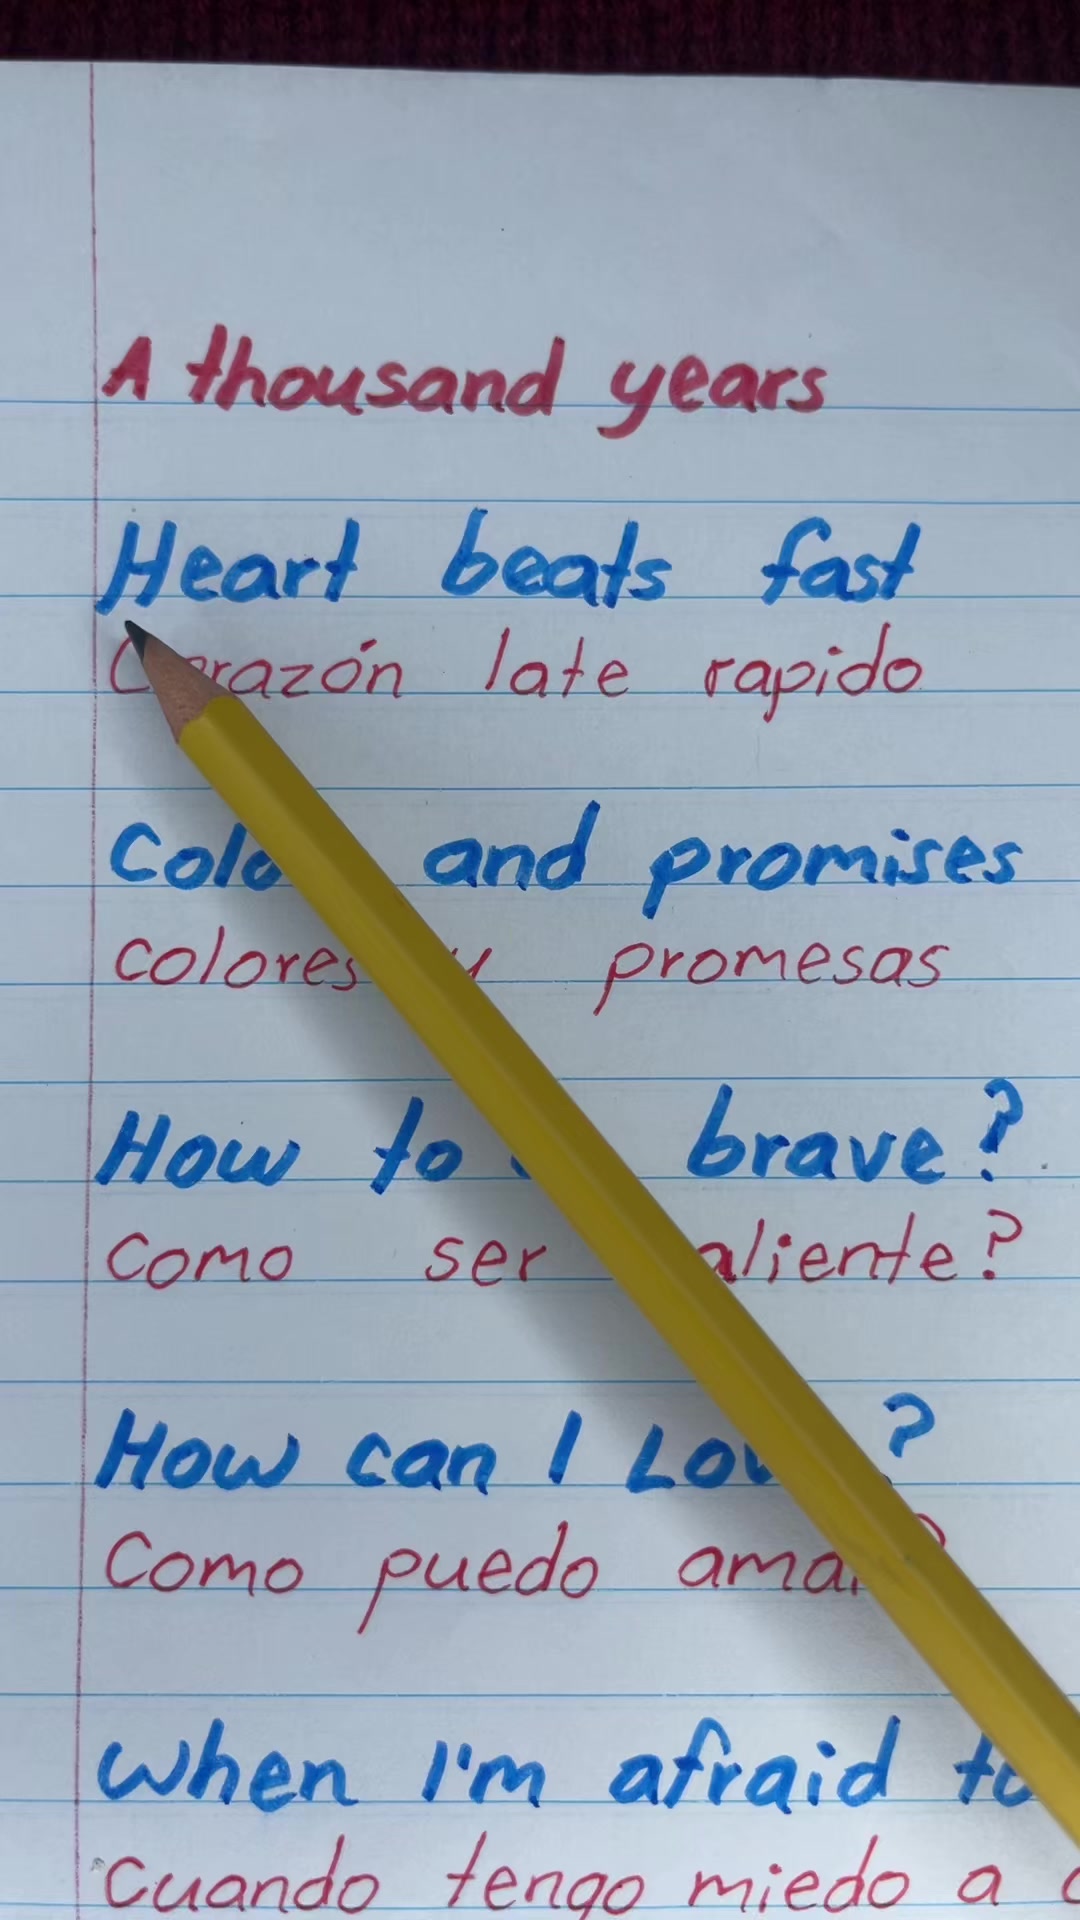 A thousand years
Heart beats fast
Corazón late rapido
Colo and promises
colores y promesas
How to brave?
Como ser aliente?
How can I Lov ?
Como puedo amar?
When I'm afraid to
Cuando tengo miedo a